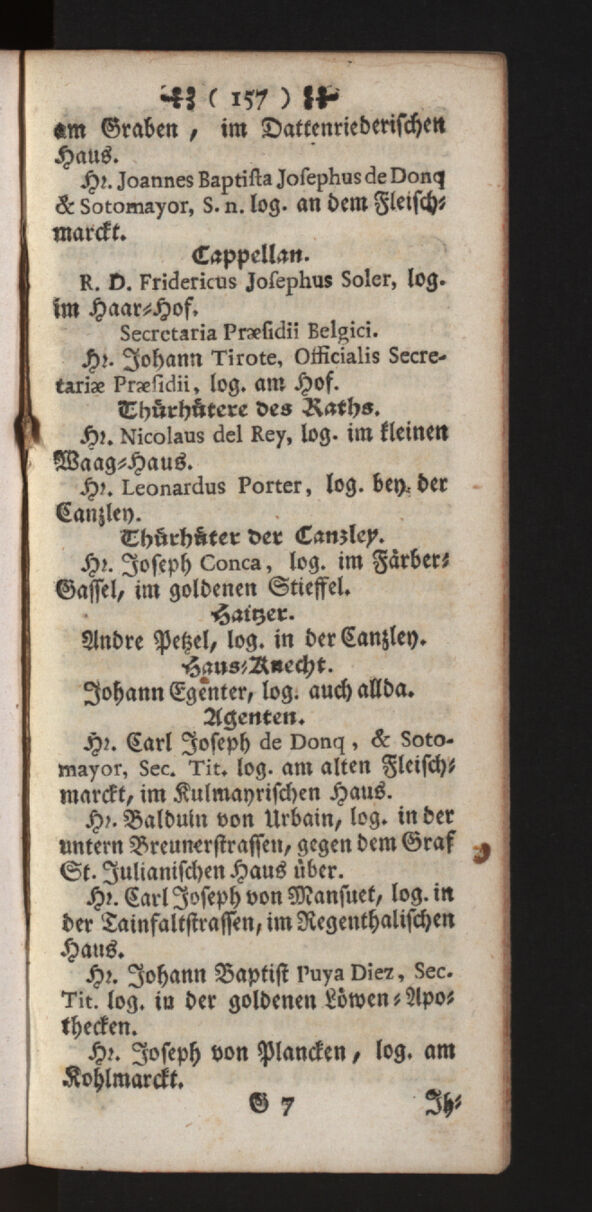 ( 157 )
am Graben , im Dattenriederischen
Haus.
Hr. Joannes Baptista Josephus de Donq
& Sotomayor, S. n. log. an dem Fleisch⸗
marckt.
Cappellan.
R. D. Fridericus Josephus Soler, log.
im Haar⸗Hof.
Secretaria Præsidii Belgici.
Hr. Johann Tirote, Officialis Secre-
tariæ Præsidii, log. am Hof.
Thürhütere des Raths.
Hr. Nicolaus del Rey, log. im kleinen
Waag⸗Haus.
Hr. Leonardus Porter, log. bey der
Canzley.
Thürhüter der Canzley.
Hr. Joseph Conca, log. im Färber⸗
Gassel, im goldenen Stieffel.
Haitzer.
Andre Petzel, log. in der Canzley.
Haus⸗Knecht.
Johann Egenter, log. auch allda.
Agenten.
Hr. Carl Joseph de Donq, & Soto-
mayor, Sec. Tit. log. am alten Fleisch⸗
marckt, im Kulmayrischen Haus.
Hr. Balduin von Urbain, log. in der
untern Breunerstrassen, gegen dem Graf
St. Julianischen Haus über.
Hr. Carl Joseph von Mansuet, log. in
der Tainfaltstrassen, im Regenthalischen
Haus.
Hr. Johann Baptist Puya Diez, Sec.
Tit. log. in der goldenen Löwen⸗Apo⸗
thecken.
Hr. Joseph von Plancken, log. am
Kohlmarckt.
G 7 Ih⸗